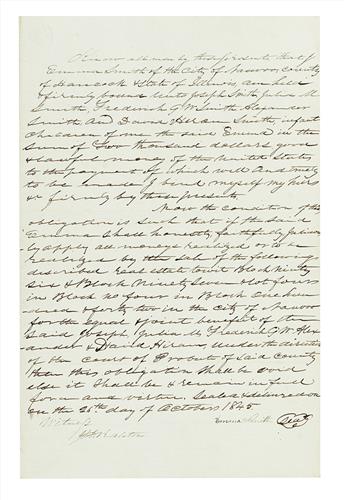 Know all men by these presents that I
Emma Smith of the City of Nauvoo County
of Hancock & State of Illinois am held
& firmly bound unto Joseph Smith Julia M
Smith Frederick G W Smith Alexander
Smith and David Hiram Smith, infant
children of me the said Emma in the
sum of Two thousand dollars good
& lawful money of the United States
to the payment of which will and truly
to be made I bend myself my heirs
&c firmly by these presents
Now the condition of the
obligation is such that if the said
Emma shall honestly, faithfully
by apply all moneys realized or to be
realized by the sale of the following
described real estate towit Block Ninety
six & Block Ninety Seven & Lot fours
in Block no four in Block One hun
dred & forty two in the City of Nauvoo
for the equal & joint benefit of the
said Joseph Julia M Frederick G W Alex
ander & David Hiram, under the direction
of the Court of Probate of said County
then this obligation shall be void
else it shall be & remain in full
force and virtue. Sealed & delivered
on the 25th day of October 1845
Witness Emma Smith Seal
Ralston